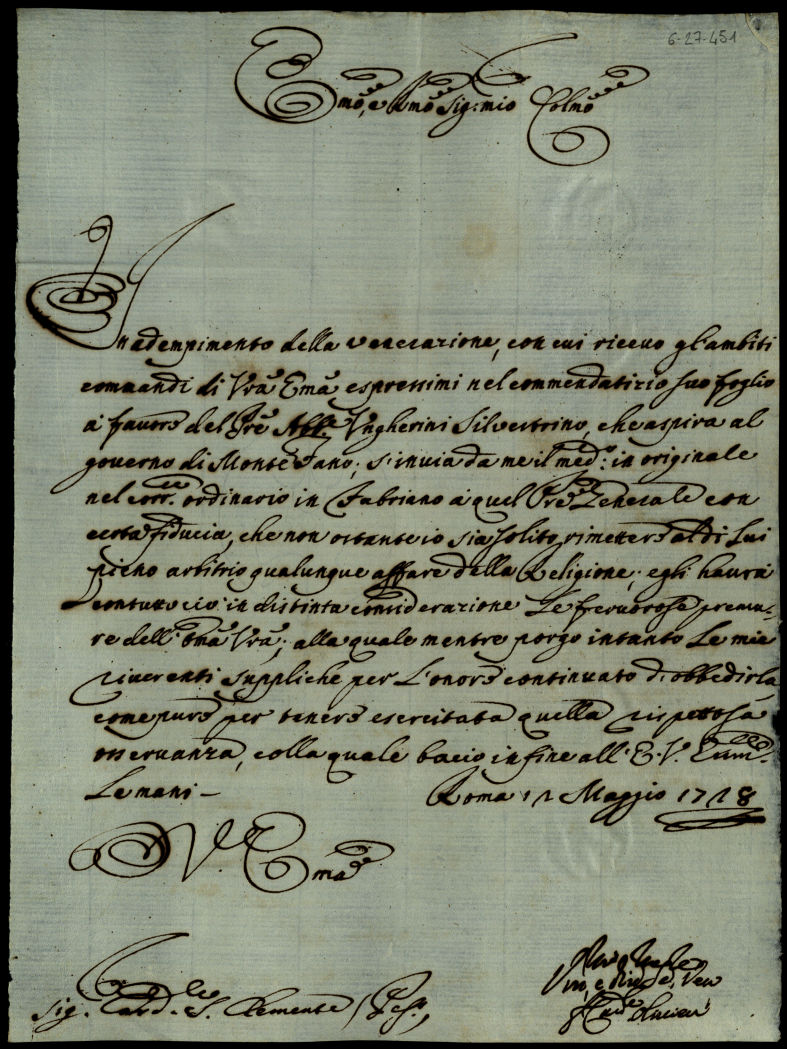 6-27-451
Emo, e Rmo Sig: mio Colmo
In adempimento della venerazione, con cui ricevo gl'ambiti
commandi di Vra Ema espressimi nel commendatizio suo foglio
à favore del Pre Abb.e Ungherini Silvestrino, che aspira al
governo di Monte Fano; s'invia da me il med.o in originale
nel corr.te ordinario in Fabriano à quel Pre Generale con
certa fiducia, che non ostante io sia solito rimettere al di Lui
pieno arbitrio qualunque affare della Religione; egli haurà
contuttociò in distinta considerazione Le fervorose premu-
re dell'Ema Vra; alla quale mentre porgo intanto Le mie
riverenti suppliche per L'onore continuato d'obbedirla
come pure per tenere esercitata quella rispettosa
osservanza, colla quale bacio in fine all'E. V. Lum.e
Le mani – Roma 12 Maggio 1728
V. Ema
Sig. Card.le S. Clemente